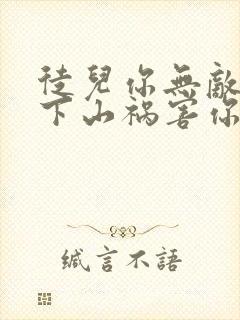 徒兒你無敵
下山禍害你
緘言不語